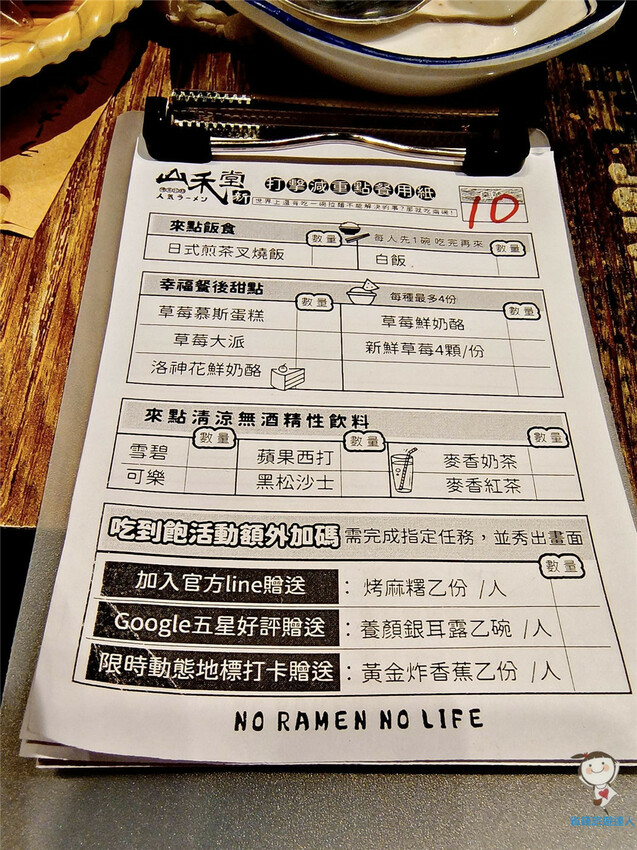 山禾堂
人気ラーメン
打擊減重點餐用紙
10
來點飯食
數量
每人先1碗 吃完再來
數量
日式煎茶叉燒飯
白飯
幸福餐後甜點
數量
每種最多4份
數量
草莓慕斯蛋糕
草莓鮮奶酪
草莓大派
新鮮草莓4顆/份
洛神花鮮奶酪
來點清涼無酒精性飲料
數量
數量
數量
雪碧
蘋果西打
麥香奶茶
可樂
黑松沙士
麥香紅茶
吃到飽活動額外加碼 需完成指定任務，並秀出畫面
數量
加入官方line贈送 : 烤麻糬乙份 /人
Google五星好評贈送 : 養顏銀耳露乙碗 /人
限時動態地標打卡贈送 : 黃金炸香蕉乙份 /人
NO RAMEN NO LIFE